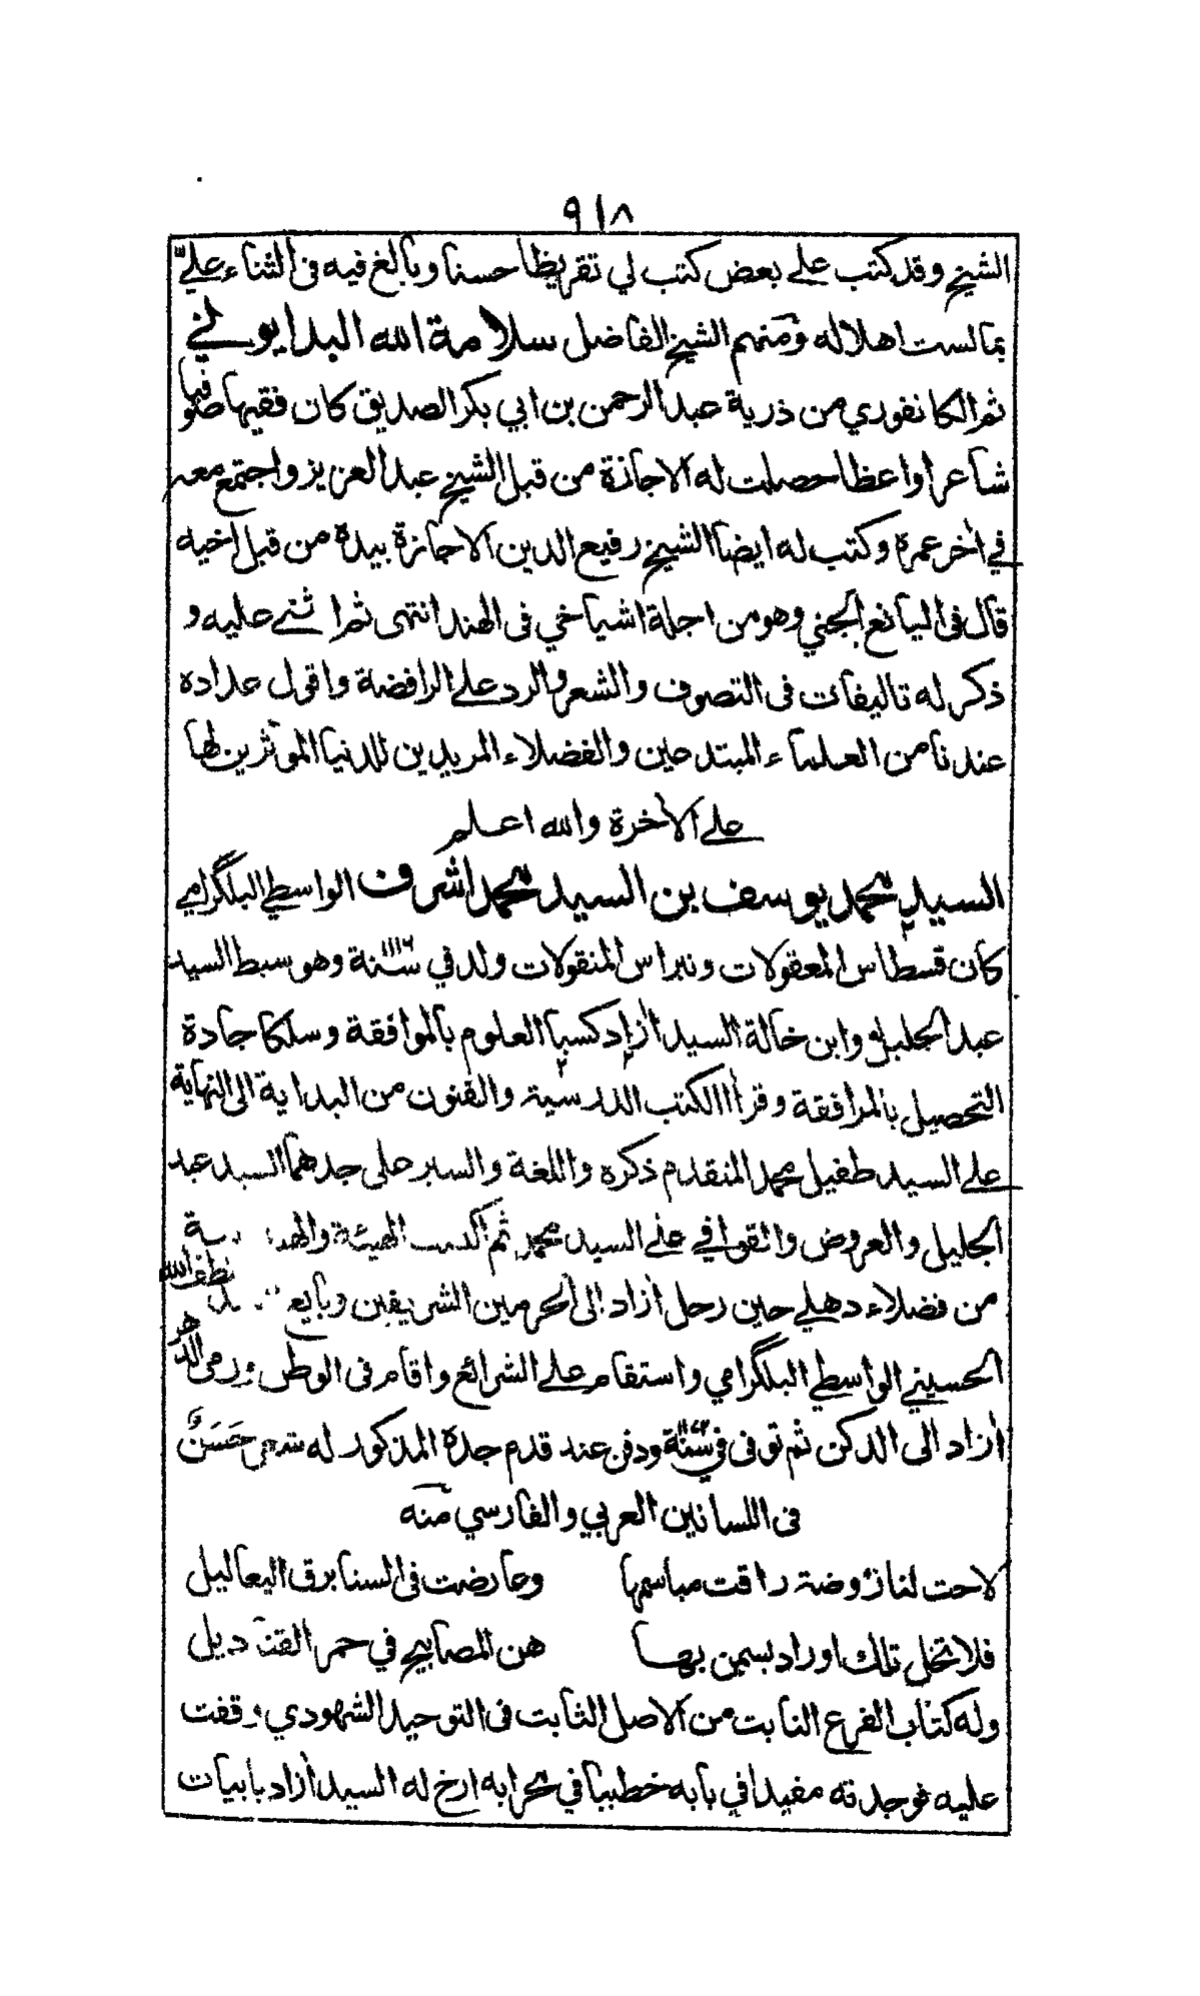 ٩١٨
الشيخ وقد كتب علے بعض كتب لي تقريظا حسنا وبالغ فيه فى الثناء عليّ
بما لست اهلا له ومنهم الشيخ الفاضل سلامة الله البدايوني
ثم الكانفوري من ذرية عبد الرحمن بن ابي بكر الصديق كان فقيها صوفيا
شاعرا واعظا حصلت له الاجازة من قبل الشيخ عبد العزيز واجتمع معه
في اٰخر عمره وكتب له ايضا الشيخ رفيع الدين الاجازة بيده من قبل اخيه
قال فى اليانع الجني وهو من اجلة اشياخي فى الهند انتهى ثم اثنے عليه و
ذكر له تاليفات فى التصوف والشعر والرد علے الرافضة واقول عداده
عندنا من العلماء المبتدعين والفضلاء المريدين للدنيا الموثرين لها
علے الاٰخرة والله اعلم
السيد محمد يوسف بن السيد محمد اشرف الواسطي البلگرامي
كان قسطاس المعقولات ونبراس المنقولات ولد في سنة ١١١٦ وهو سبط السيد
عبد الجليل وابن خالة السيد اٰزاد كسبا العلوم بالموافقة وسلكا جادة
التحصيل بالمرافقة وقرأا الكتب الدرسية والفنون من البداية الى النهاية
علے السيد طفيل محمد المتقدم ذكره واللغة والسير على جدهما السيد عبد
الجليل والعروض والقوافي علے السيد محمد ثم اكتسب الهيئة
من فضلاء دهلے حين رحل اٰزاد الى الحرمين الشريفين وبايع لطف الله
الحسيني الواسطي البلگرامي واستقام علے الشرائع واقام فى الوطن ورمى الدهر
اٰزاد الى الدكن ثم توفى في سنة ودفن عند قدم جده المذكور له شعر حَسَنٌ
فى اللسانين العربي والفارسي منه
لاحت لنا روضة راقت مباسمها وعارضت فى السنا برق اليعاليل
فلا تخل تلك اوراد بسمن بها هن المصابيح في حمر القناديل
وله كتاب الفرع النابت من الاصل الثابت فى التوحيد الشهودي وقفت
عليه فوجدته مفيدا في بابه خطيبا في محرابه ارخ له السيد اٰزاد بابيات